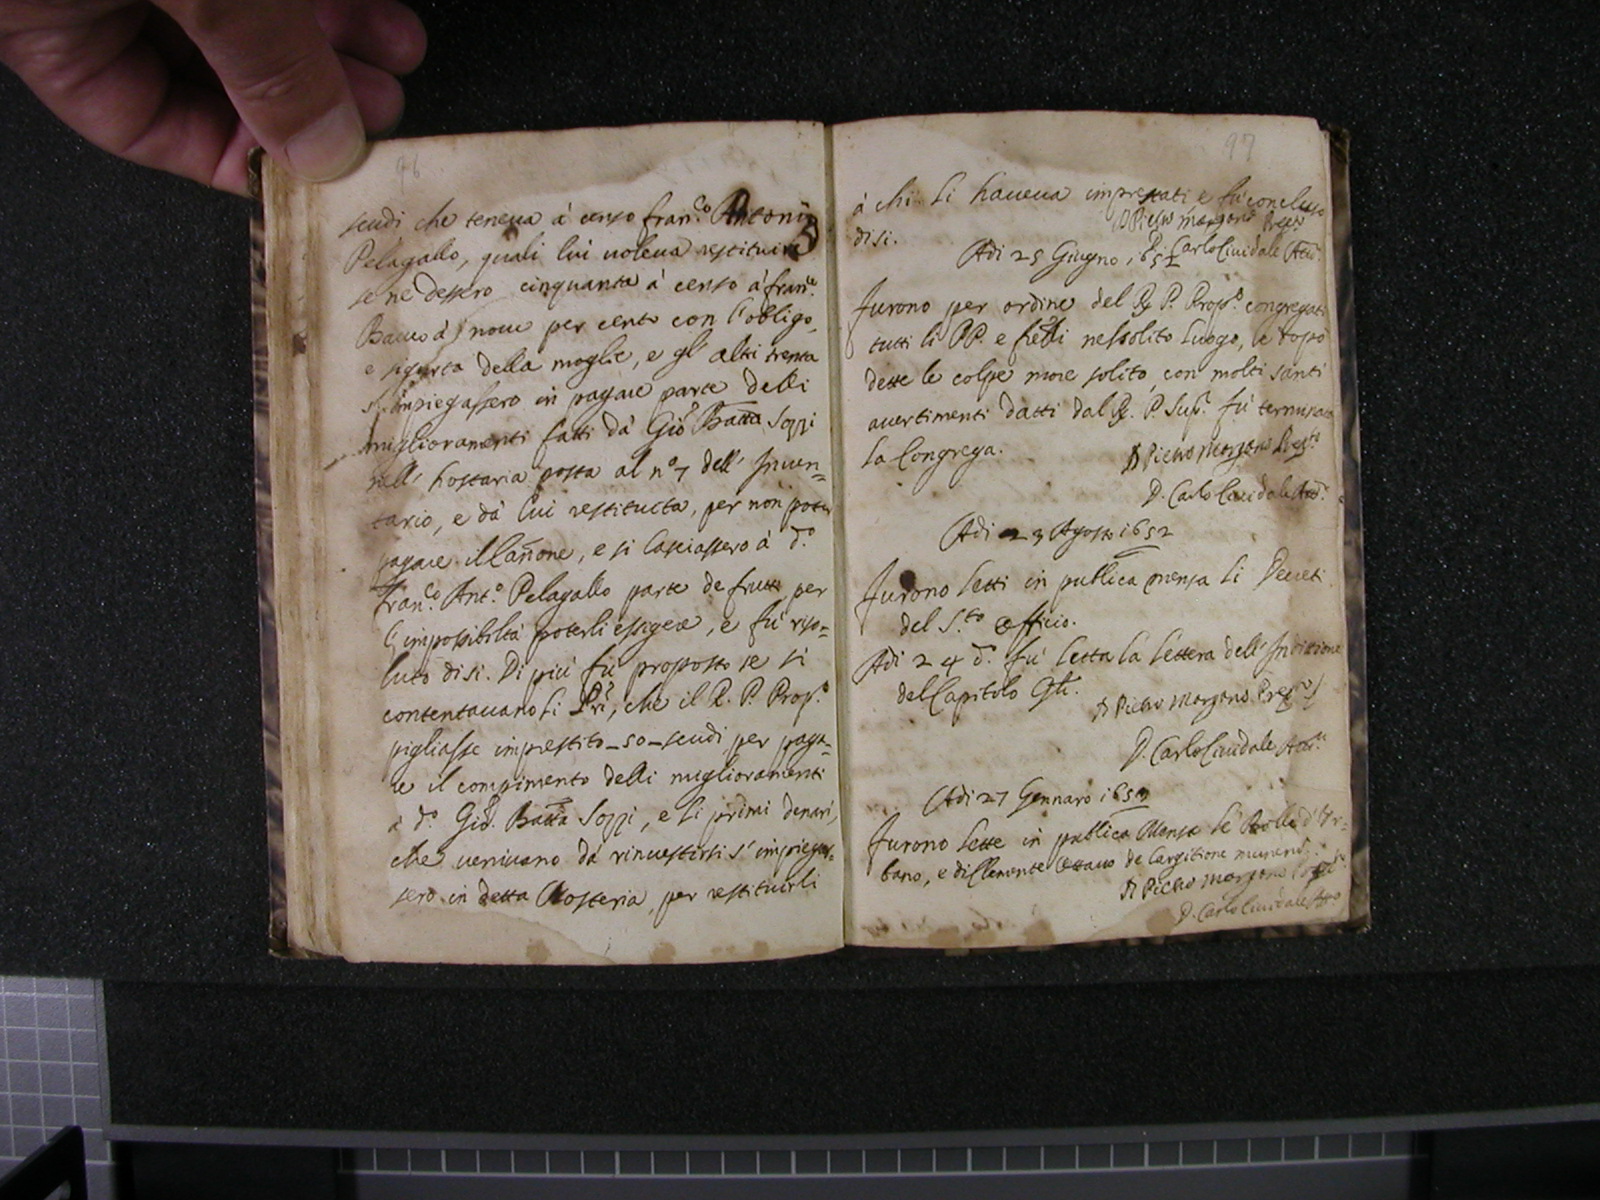 96
scudi che teneua à censo fran.co Antonio
Pelagallo, quali lui uoleua restituire
se ne dessero cinquanta à censo à fran.co
Bacco à noue per cento con l'obligo,
e sigurta della moglie, e gl' altri trenta
s'impiegassero in pagare parte delli
miglioramenti fatti dà Gio Batta Sozzi
nell' hostaria posta al n.o 7 dell' Inuen=
tario, e dà lui restituita, per non poter
pagare il Canone, e si lasciassero à d.o
Fran.co Ant.o Pelagallo parte de frutti per
l'impossibiltà poterli essigere, e fù riso=
luto di si. Di più fù proposto se si
contentauano li Pri, che il R. P. Prop.o
pigliasse imprestito_50_scudi per paga=
re il compimento delli miglioramenti
à d.o Gio. Batta Sozzi, e li primi denari,
che ueniuano da rinuestirsi s'impiegas=
sero in detta Hosteria, per restituirli
97
à chi li haueua imprestati e fù concluso
di si.
D Pietro Morgano Prep.to
Adi 25 Giugno 1652 Carlo Ciuidale Att.
Furono per ordine del R. P. Prop.o congregati
tutti li PP. e fretti nel solito luogo, e dopo
dette le colpe more solito, con molti santi
auertimenti datti dal R. P. Sup.r fù terminata
la Congrega.
D Pietro Morgano Prep.to
D. Carlo Ciuidale Att.
Adi 23 Agosto 1652
Furono letti in publica mensa li Decreti
del S.to Officio.
Adi 24 d.o fù letta la lettera dell' Inditione
del Capitolo Gle.
D Pietro Morgano Prep.to
D. Carlo Ciuidale Att.
Adi 27 Gennaro 1653
Furono lette in publica Mensa le Bolle d' Vr=
bano, e di Clemente Ottauo de largitione munerum.
D Pietro Morgano Prep.to
D. Carlo Ciuidale Att.o